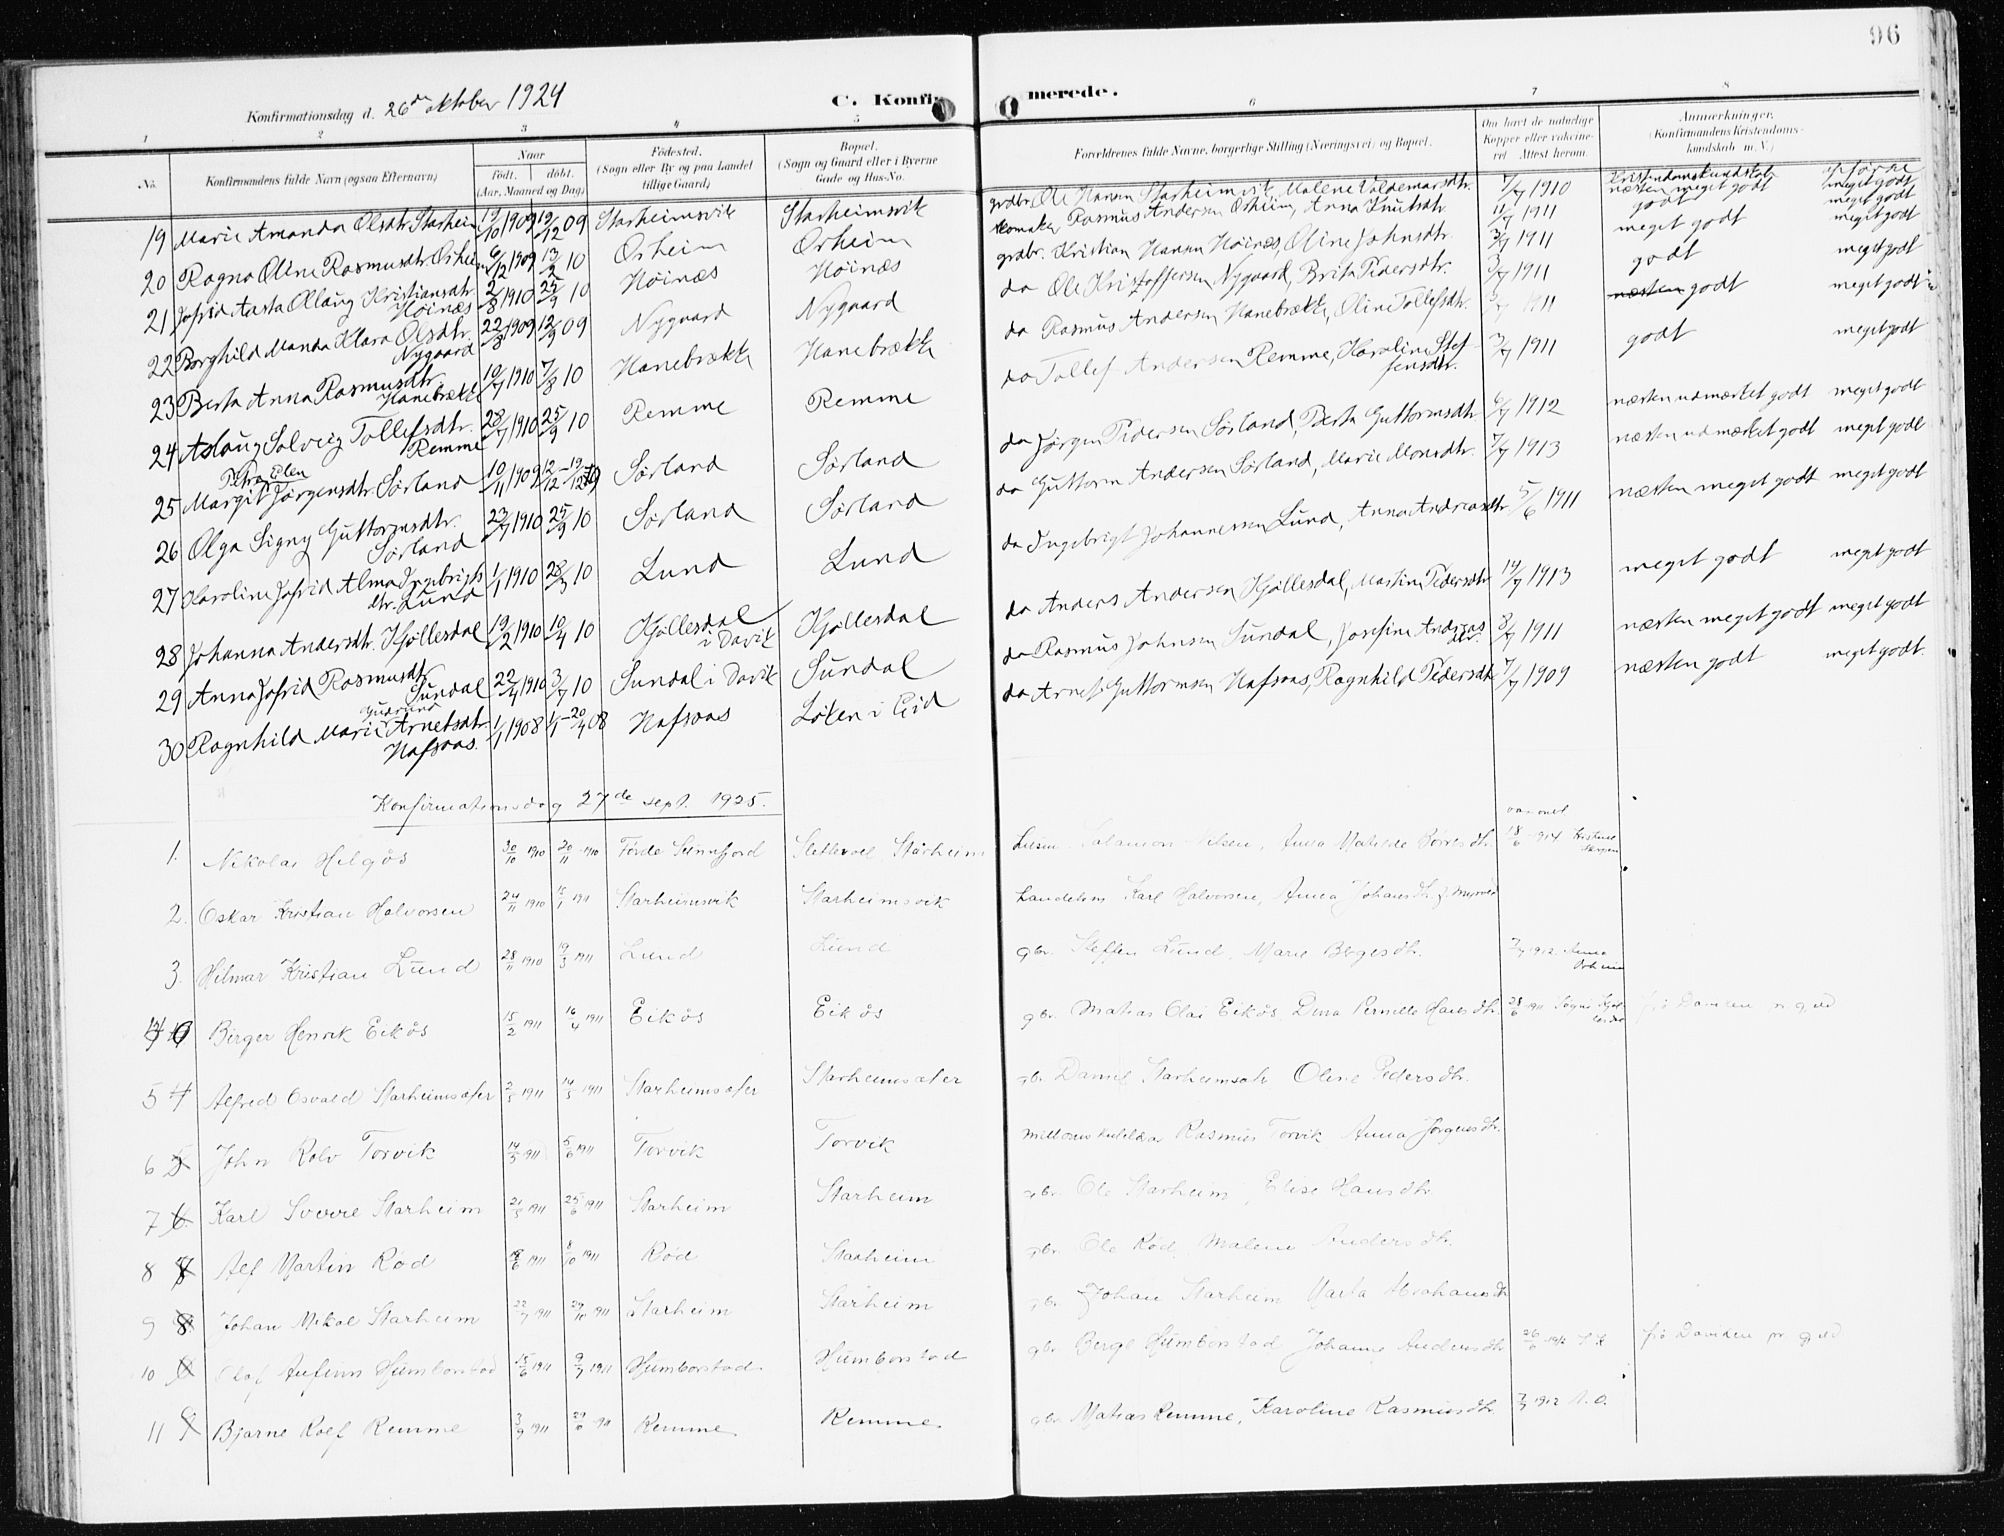 96
Konfirmationsdag d. 26de oktober 1924
C. Konfirmerede.
1 2 3 4 5 6 7 8
No. Konfirmandens fulde Navn (ogsaa Efternavn)
Naar født. døbt. (Aar, Maaned og Dag)
Fødested. (Sogn eller By og paa Landet tillige Gaard)
Bopæl. (Sogn og Gaard eller i Byerne Gade og Hus-No.
Forældrenes fulde Navne, borgerlige Stilling (Næringsvei) og Bopæl.
Om havt de naturlige Kopper eller vaccineret Attest herom.
Anmærkninger. (Konfirmandens Kristendomskundskab m.V.)
Kristendomskundskab opførse
19 Marie Amanda Olsdtr. Starheim 19/10 1909 19/12 09 Starheimsvik Starheimsvik grdbr. Ole Hansen Starheimsvik, Malene Valdemarsdtr. 7/7 1910 næsten meget godt meget godt
20 Ragna Oline Rasmusdtr. Orheim 6/12 1909 13/2 10 Orheim Orheim skomaker Rasmus Andersen Orheim, Anna Knutsdtr. 11/7 1911 godt meget godt
21 Jofrid Aasta Ollaug Kristiansdtr. Høinæs 2/8 1910 25/9 10 Høinæs Høinæs grdbr. Kristian Hansen Høinæs, Oline Johnsdtr. 3/7 1911 meget godt meget godt
22 Borghild Manda Klara Olsdtr. Nygaard 22/8 1909 12/9 09 Nygaard Nygaard do Ole Kristoffersen Nygaard, Brita Pedersdtr. 3/7 1911 godt meget godt
23 Berta Anna Rasmusdtr. Hanebrække 10/7 1910 7/8 10 Hanebrække Hanebrække do Rasmus Andersen Hanebrække, Oline Tollefsdtr. 3/7 1911 næsten godt meget godt
24 Aslaug Solveig Tollefsdtr. Remme 28/7 1910 25/9 10 Remme Remme do Tollef Andersen Remme, Karoline Steffensdtr. 3/7 1911 godt meget godt
25 Margit Petra Elen Jørgensdtr. Sørland 10/11 1909 12/12-19/12 09 Sørland Sørland do Jørgen Pedersen Sørland, Berta Guttormsdtr. 6/7 1912 næsten udmærket godt meget godt
26 Olga Signy Guttormsdtr. Sørland 23/7 1910 25/9 10 Sørland Sørland do Guttorm Andersen Sørland, Marie Monsdtr. 7/7 1913 næsten udmærket godt meget godt
27 Karoline Jofrid Alma Ingebrigtsdtr. Lund 1/1 1910 28/3 10 Lund Lund do Ingebrigt Johannessen Lund, Anna Andreasdtr. 5/6 1911 næsten meget godt meget godt
28 Johanna Andersdtr. Hjøllesdal 19/2 1910 10/4 10 Hjøllesdal i Davik Hjøllesdal do Anders Andersen Hjøllesdal, Martine Pedersdtr. 14/7 1913 meget godt meget godt
29 Anna Jofrid Rasmusdtr. Sundal 22/4 1910 3/7 10 Sundal i Davik Sundal do Rasmus Johnsen Sundal, Josefine Andreasdtr. 3/7 1911 næsten meget godt meget godt
30 Ragnhild Marie Gudrund Arnetsdtr. Hafsaas. 1/1 1908 1/1-20/4 08 Hafsaas Løken i Eid do Arnet Guttormsen Hafsaas, Ragnhild Pedersdtr. 7/7 1909 næsten godt meget godt.
Konfirmationsdag 27de sept. 1925.
1. Nikolai Helgøs 30/10 1910 20/11 1910 Førde Sunnfjord Slettevol Starheim Salamon Nilsen, Anna Matilde 18/6 1914
2. Oskar Kristian Halvorsen 24/11 1910 15/1 1911 Starheimsvik Starheimsvik Karl Halvorsen, Anna Johansdtr.
3. Hilmar Kristian Lund 28/11 1910 19/3 1911 Lund Lund gbr. Steffen Lund, Marie Børgesdtr. 7/7 1912 Anna Orheim
4 Birger Henrik Eikås 15/2 1911 16/4 1911 Eikås Eikås gbr. Matias Olai Eikås, Dina Pernille Hansdtr. 28/6 1911
5 4 Alfred Osvald Starheimsæter 2/5 1911 14/5 1911 Starheimsæter Starheimsæter gbr. Daniel Starheimsætr Oline Pedersdtr.
6 5 John Rolv Torvik 14/5 1911 5/6 1911 Torvik Torvik Rasmus Torvik Anna Jørgensdtr.
7 6 Karl Sverre Starheim 21/5 1911 25/6 1911 Starheim Starheim gbr. Ole Starheim, Elise Hansdtr.
8 7 Alf Martin Rød 18/6 1911 8/10 1911 Rød Starheim gbr. Ole Rød, Malene Andersdtr.
9 8 Johan Mikal Starheim 22/7 1911 29/10 1911 Starheim Starheim gbr. Johan Starheim Marta Abrahamsdtr.
10 Olaf Anfinn Hjumborstad 15/6 1911 9/7 1911 Hjumborstad Hjumborstad gbr. Berge Hjumborstad Johanne Andersdtr. 26/6 1912
11 9 Bjarne Rolf Remme 3/9 1911 Remme Remme gbr. Matias Remme, Karoline Rasmusdtr. 7/7 1912 A. O.